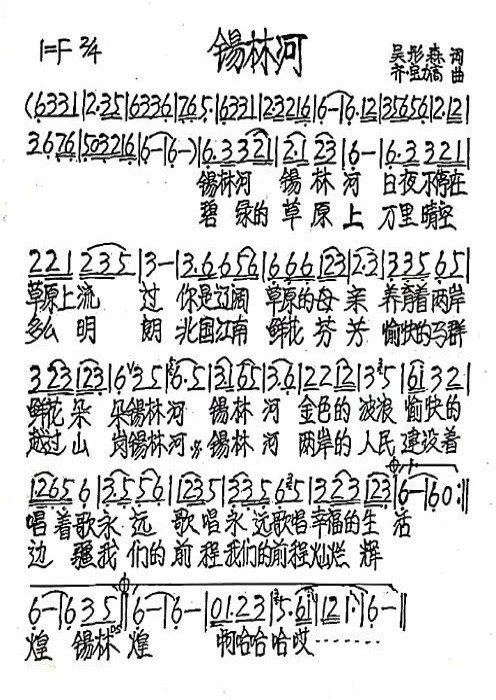 1=F 2/4
锡林河
吴彤森 词
齐·宝力高 曲
(6331|2·35|6336|765·|6331|23216|6-|6·12|35656|2·12|
3·676|503216|6-|6-)|6·3321|2·1 23|6-|6·3 321|
锡林河 锡林河 日夜不停在
碧绿的草原上 万里晴空
221 235|3-|3·6 656|666 123|2·3|335 65|
草原上流 过 你是辽阔 草原的母亲 养育着两岸
多么明 朗 北国江南 鲜花芬芳 愉快的马群
323 123|6 35|6·5|3165|3·6|22 12|3 5|61 321|
鲜花朵 朵锡林河 锡林河 金色的波浪 愉快的
越过山 岗锡林河 锡林河 两岸的人民 建设着
1265 6|3·5 56|1235|335 65|323 123|6-|60:‖
唱着歌永远 歌唱永远歌唱幸福的生 活
边 疆我们的前程我们的前程灿烂 辉
6-|635‖6-|6-|0123|5·61|121·|6-‖
煌 锡林 煌 啊哈哈哈哎………
DS